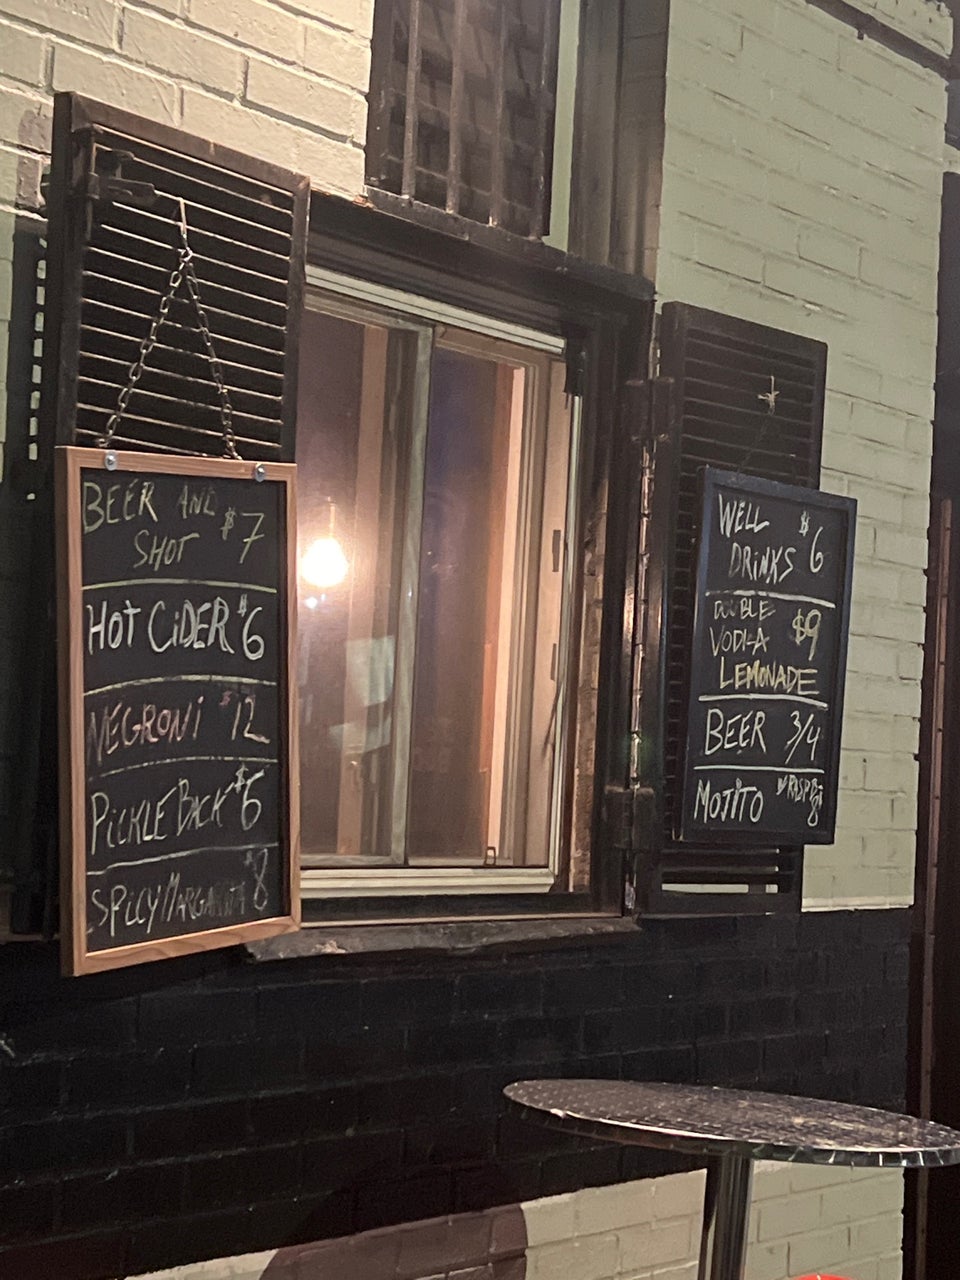 BEER AND
SHOT $7
HOT CiDER $6
NEGRONi $12
PiCKLE BACK $6
SPICY MARGARITA $8
WELL $6
DRiNKS
DOUBLE
VODKA $9
LEMONADE
BEER 3/4
MOJiTO W/RASPB 8